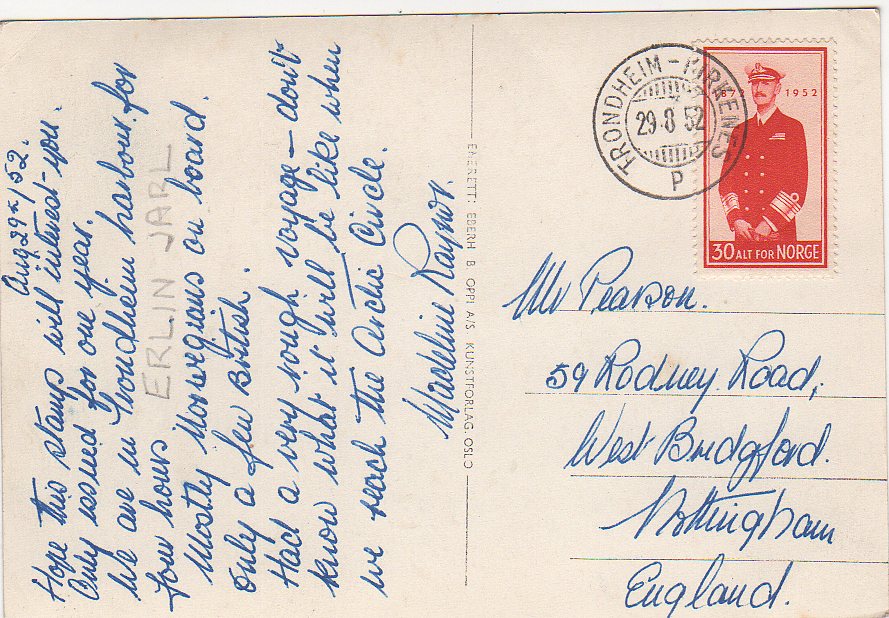 Aug 29th/52.
Hope this stamp will interest you.
Only issued for one year.
We are in Trondheim harbour for
four hours
ERLIN JARL
Mostly Norwegians on board.
Only a few British.
Had a very rough voyage – don't
know what it will be like when
we reach the Arctic Circle.
Madeline Raynor.
ENERETT: EBERH B OPPI A/S KUNSTFORLAG. OSLO
TRONDHEIM - KIRKENES
29·8 52
P
1872 1952
30 ALT FOR NORGE
Mr Pearson.
59 Rodney Road,
West Bridgford.
Nottingham
England.